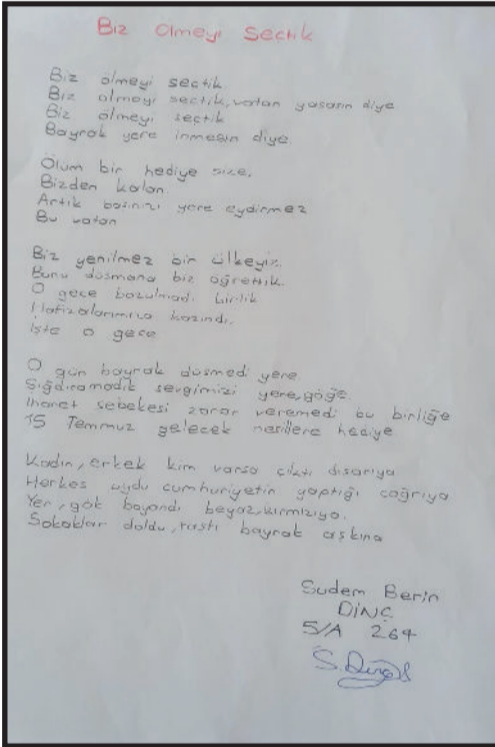 Biz Ölmeyi Seçtik
Biz ölmeyi seçtik.
Biz ölmeyi seçtik, vatan yaşasın diye
Biz ölmeyi seçtik
Bayrak yere inmesin diye.
Ölüm bir hediye size,
Bizden kalan.
Artık başınızı yere eydirmez
Bu vatan
Biz yenilmez bir ülkeyiz.
Bunu düşmana biz öğrettik.
O gece bozulmadı birlik
Hafızalarımıza kazındı.
İşte o gece
O gün bayrak düşmedi yere.
Sığdıramadık sevgimizi yere, göğe.
İhanet şebekesi zarar veremedi bu birliğe
15 Temmuz gelecek nesillere hediye
Kadın, erkek kim varsa çıktı dışarıya
Herkes uydu cumhuriyetin yaptığı çağrıya
Yer, gök boyandı beyaz, kırmızıya.
Sokaklar doldu, taştı bayrak aşkına
Sudem Berin
DİNÇ
5/A 264
S.Dinç